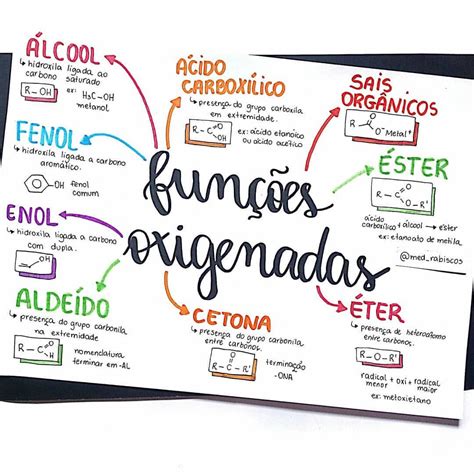 funções
oxigenadas
ÁLCOOL
hidroxila ligada ao
carbono saturado
R-OH
ex: H₃C-OH
metanol
FENOL
hidroxila ligada a carbono
aromático.
OH
fenol
comum
ENOL
hidroxila ligada a carbono
com dupla.
OH
ALDEÍDO
presença do grupo carbonila
na extremidade
R-C
O
H
nomenclatura
terminar em -AL
ÁCIDO
CARBOXÍLICO
presença do grupo carboxila
em extremidade.
R-C
O
OH
ex: ácido etanóico
ou ácido acético
CETONA
presença do grupo carbonila
entre carbonos.
O
R-C-R'
terminação
-ONA
SAIS
ORGÂNICOS
O
R
O⁻Metal⁺
ÉSTER
R-C
O
O-R'
ácido
carboxílico + álcool → éster
ex: etanoato de metila.
@med_rabiscos
ÉTER
presença de heteroátomo
entre carbonos.
R-O-R'
radical + oxi + radical
menor maior
ex: metoxietano